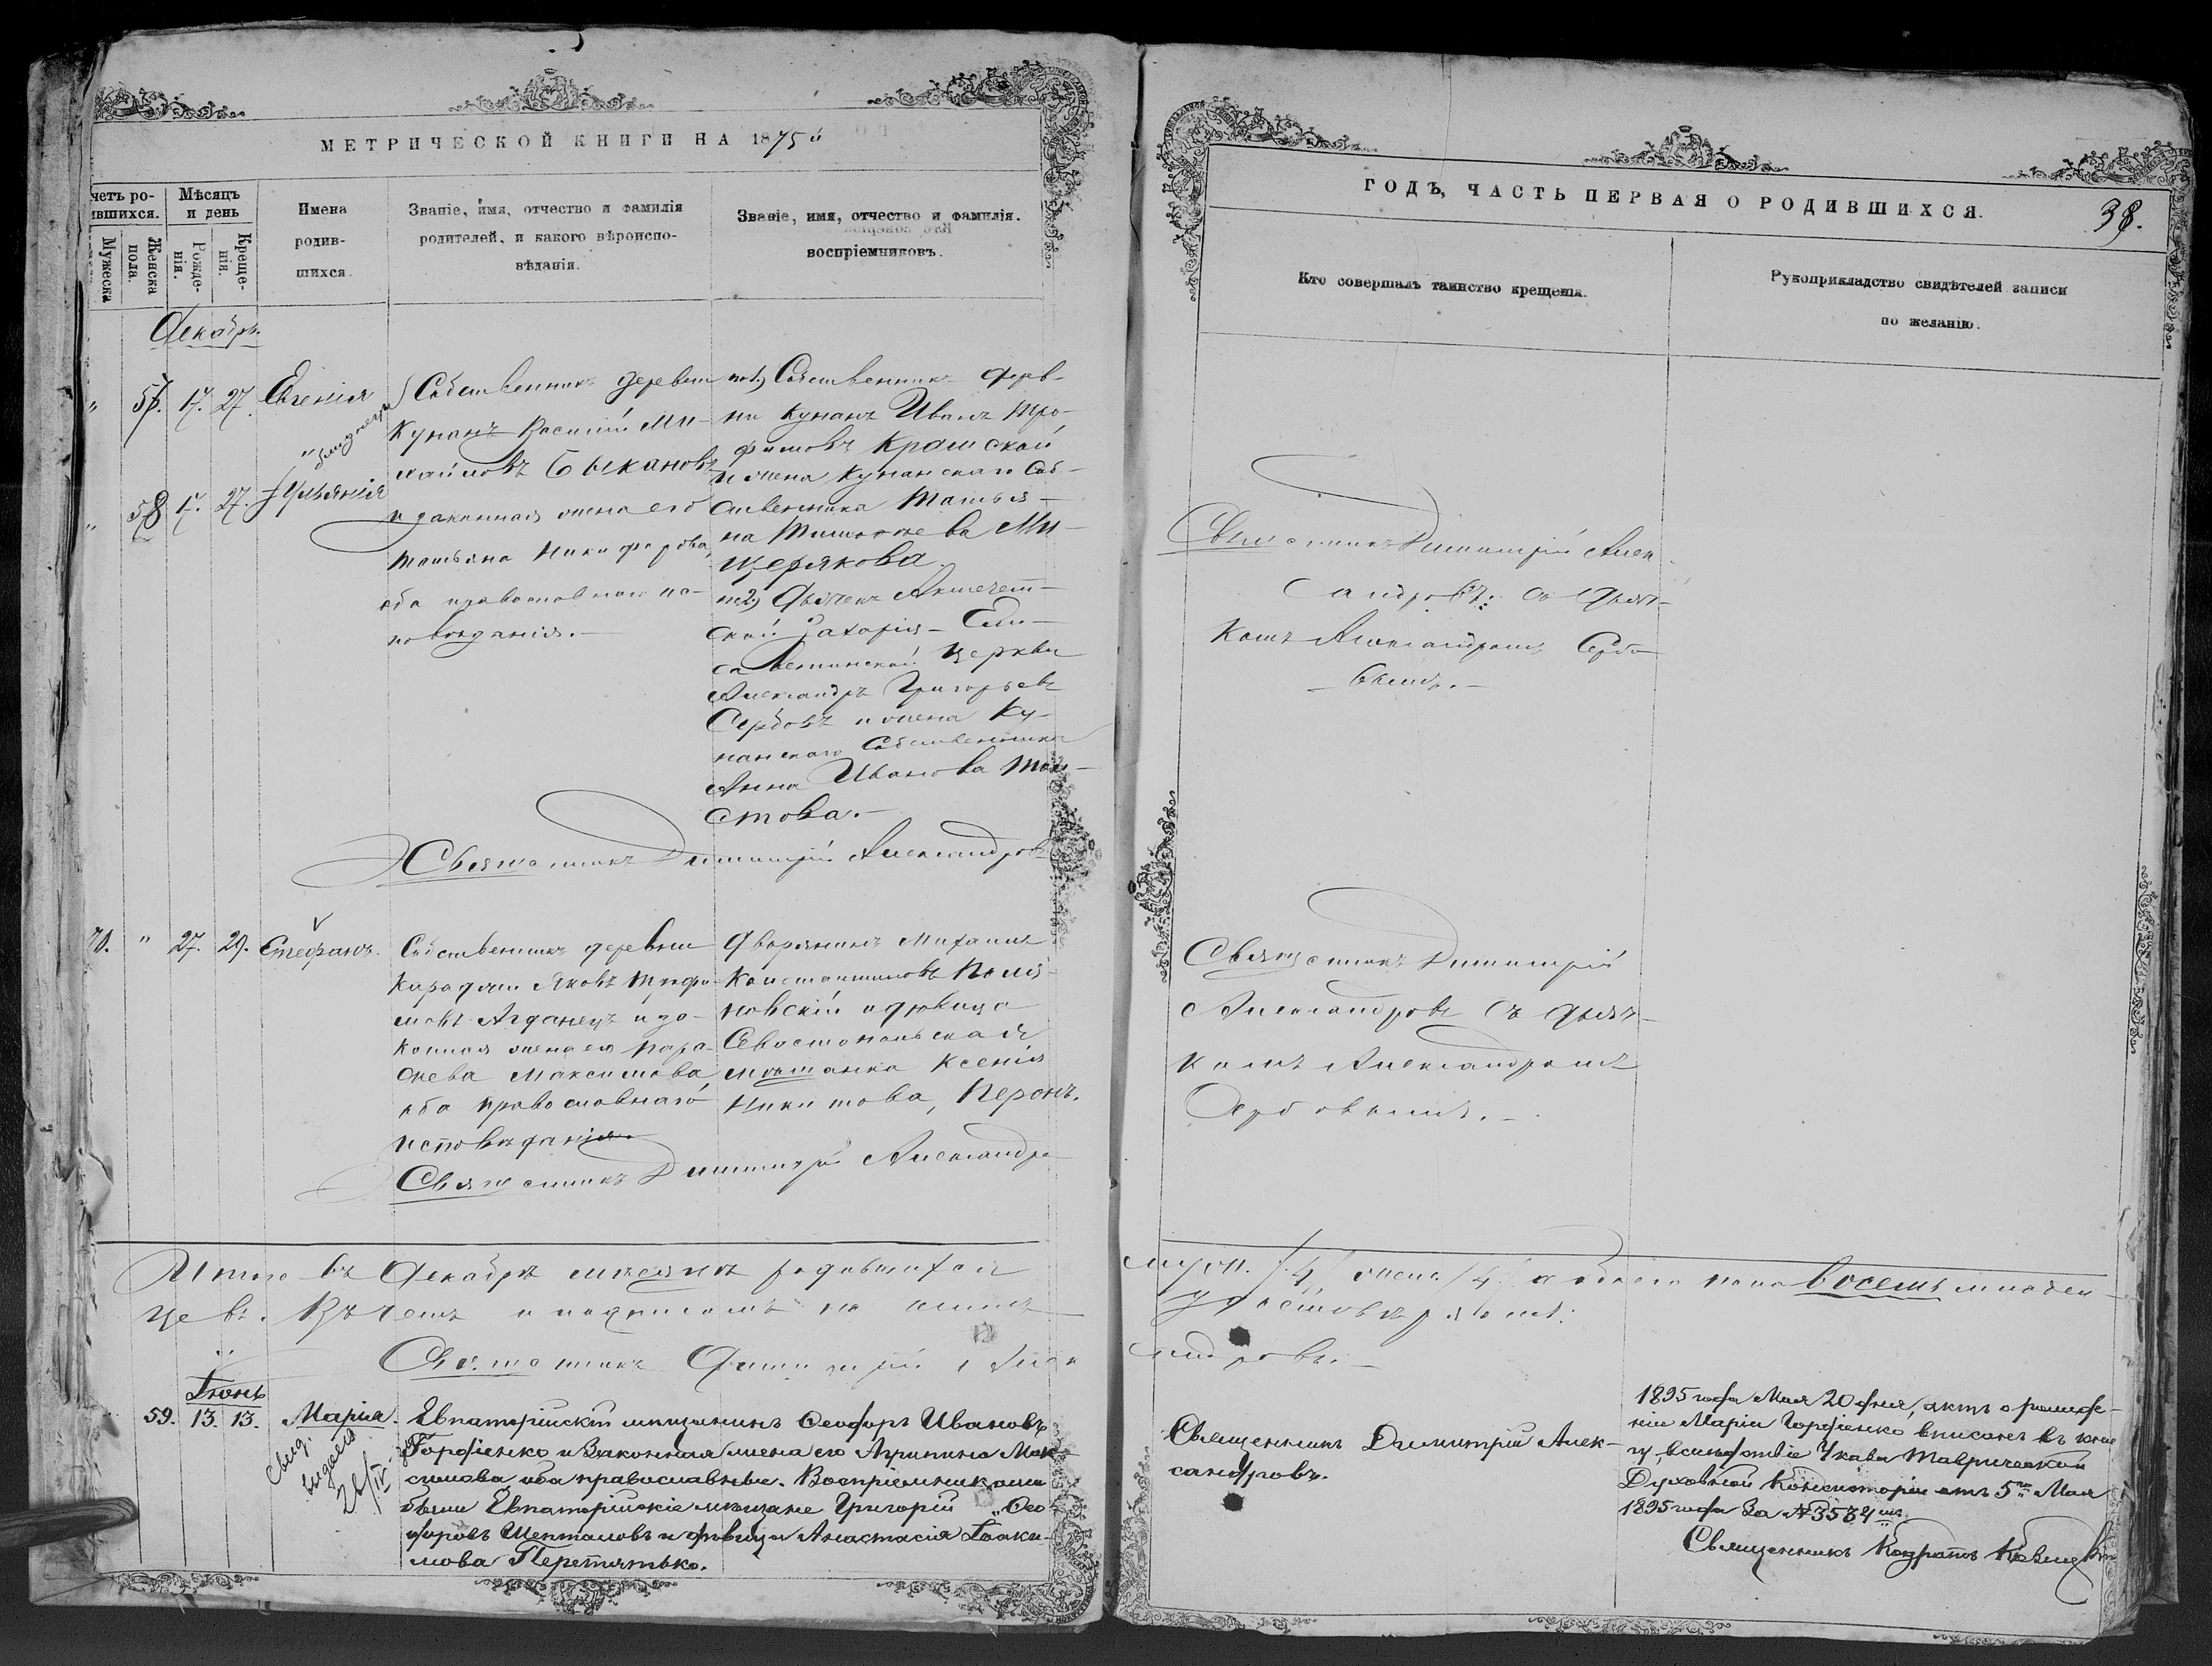 МЕТРИЧЕСКОЙ КНИГИ НА 1875й
четъ ро-
ившихся.
Мѣсяцъ
и день
Мужеска
Женска
пола.
Рожде-
нія.
Креще-
нія.
Имена
родив-
шихся.
Званіе, имя, отчество и фамилія
родителей, и какого вѣроиспо-
вѣданія.
Званіе, имя, отчество и фамилія.
воспріемниковъ.
Декабрь
" 57. 17. 27. Евгенія
близнецы
" 58 17. 27. Ульянія
Собственникъ деревни
Кунанъ Василій Ми-
хайловъ Быкановъ
и законная жена его
Татьяна Никифорова,
оба православнаго ис-
повѣданія.—
1) Собственникъ дерев-
ни Кунанъ Иванъ Тро-
фимовъ Крамской
и жена Кунанскаго Соб-
ственника Татья-
на Тимофеева Ми-
щерякова.
2) Дьячекъ Акмечет-
ской Захарія-Ели-
саветинской церкви
Александръ Григорьевъ
Сербовъ и жена Ку-
нанскаго Собственника
Анна Иванова Тол-
стова.—
Священникъ Димитрій Александровъ
70. " 27. 29. Стефанъ.
Собственникъ деревни
Караджи Яковъ Трофи-
мовъ Агданецъ и за-
конная жена его Пара-
скева Максимова
оба православнаго
исповѣданія.
Дворянинъ Михаилъ
Константиновъ Поля-
новскій и дѣвица
Севастопольская
мѣщанка Ксенія
Никитова, Перонъ.
Священникъ Димитрій Александро
Итого въ Декабрѣ мѣсяцѣ родившихся
цевъ.
Священникъ Димитрій Алек
Іюнь
59. 13. 13. Марія.
Свид.
выдано
26/IV
Евпаторійскій мѣщанинъ Ѳеодоръ Ивановъ
Гордіенко и Законная жена его Агрипина Мак-
симова, оба православные. Воспріемниками
были Евпаторійскіе мѣщане Григорій Ѳео-
доровъ Шепталовъ и дѣвица Анастасія Іоаки-
мова Перетятько.
ГОДЪ, ЧАСТЬ ПЕРВАЯ О РОДИВШИХСЯ.
38.
Кто совершалъ таинство крещенія.
Рукоприкладство свидѣтелей записи
по желанію.
Священникъ Димитрій Алек-
сандровъ: съ дьяч-
комъ Александромъ Сербо-
вымъ.—
Священникъ Димитрій
Александровъ съ дьяч-
комъ Александромъ
Сербовымъ.—
муж. /4/ жен. /4/ а обоего пола восемь младен-
сандровъ.—
Священникъ Димитрій Алек-
сандровъ.
1895 года Мая 20 дня, актъ о рожде-
ніи Маріи Гордіенко вписанъ въ кни-
гу, вслѣдствіе Указа Таврической
Духовной Консисторіи отъ 5го Мая
1895 года за № 3584мъ.
Священникъ Кодратъ